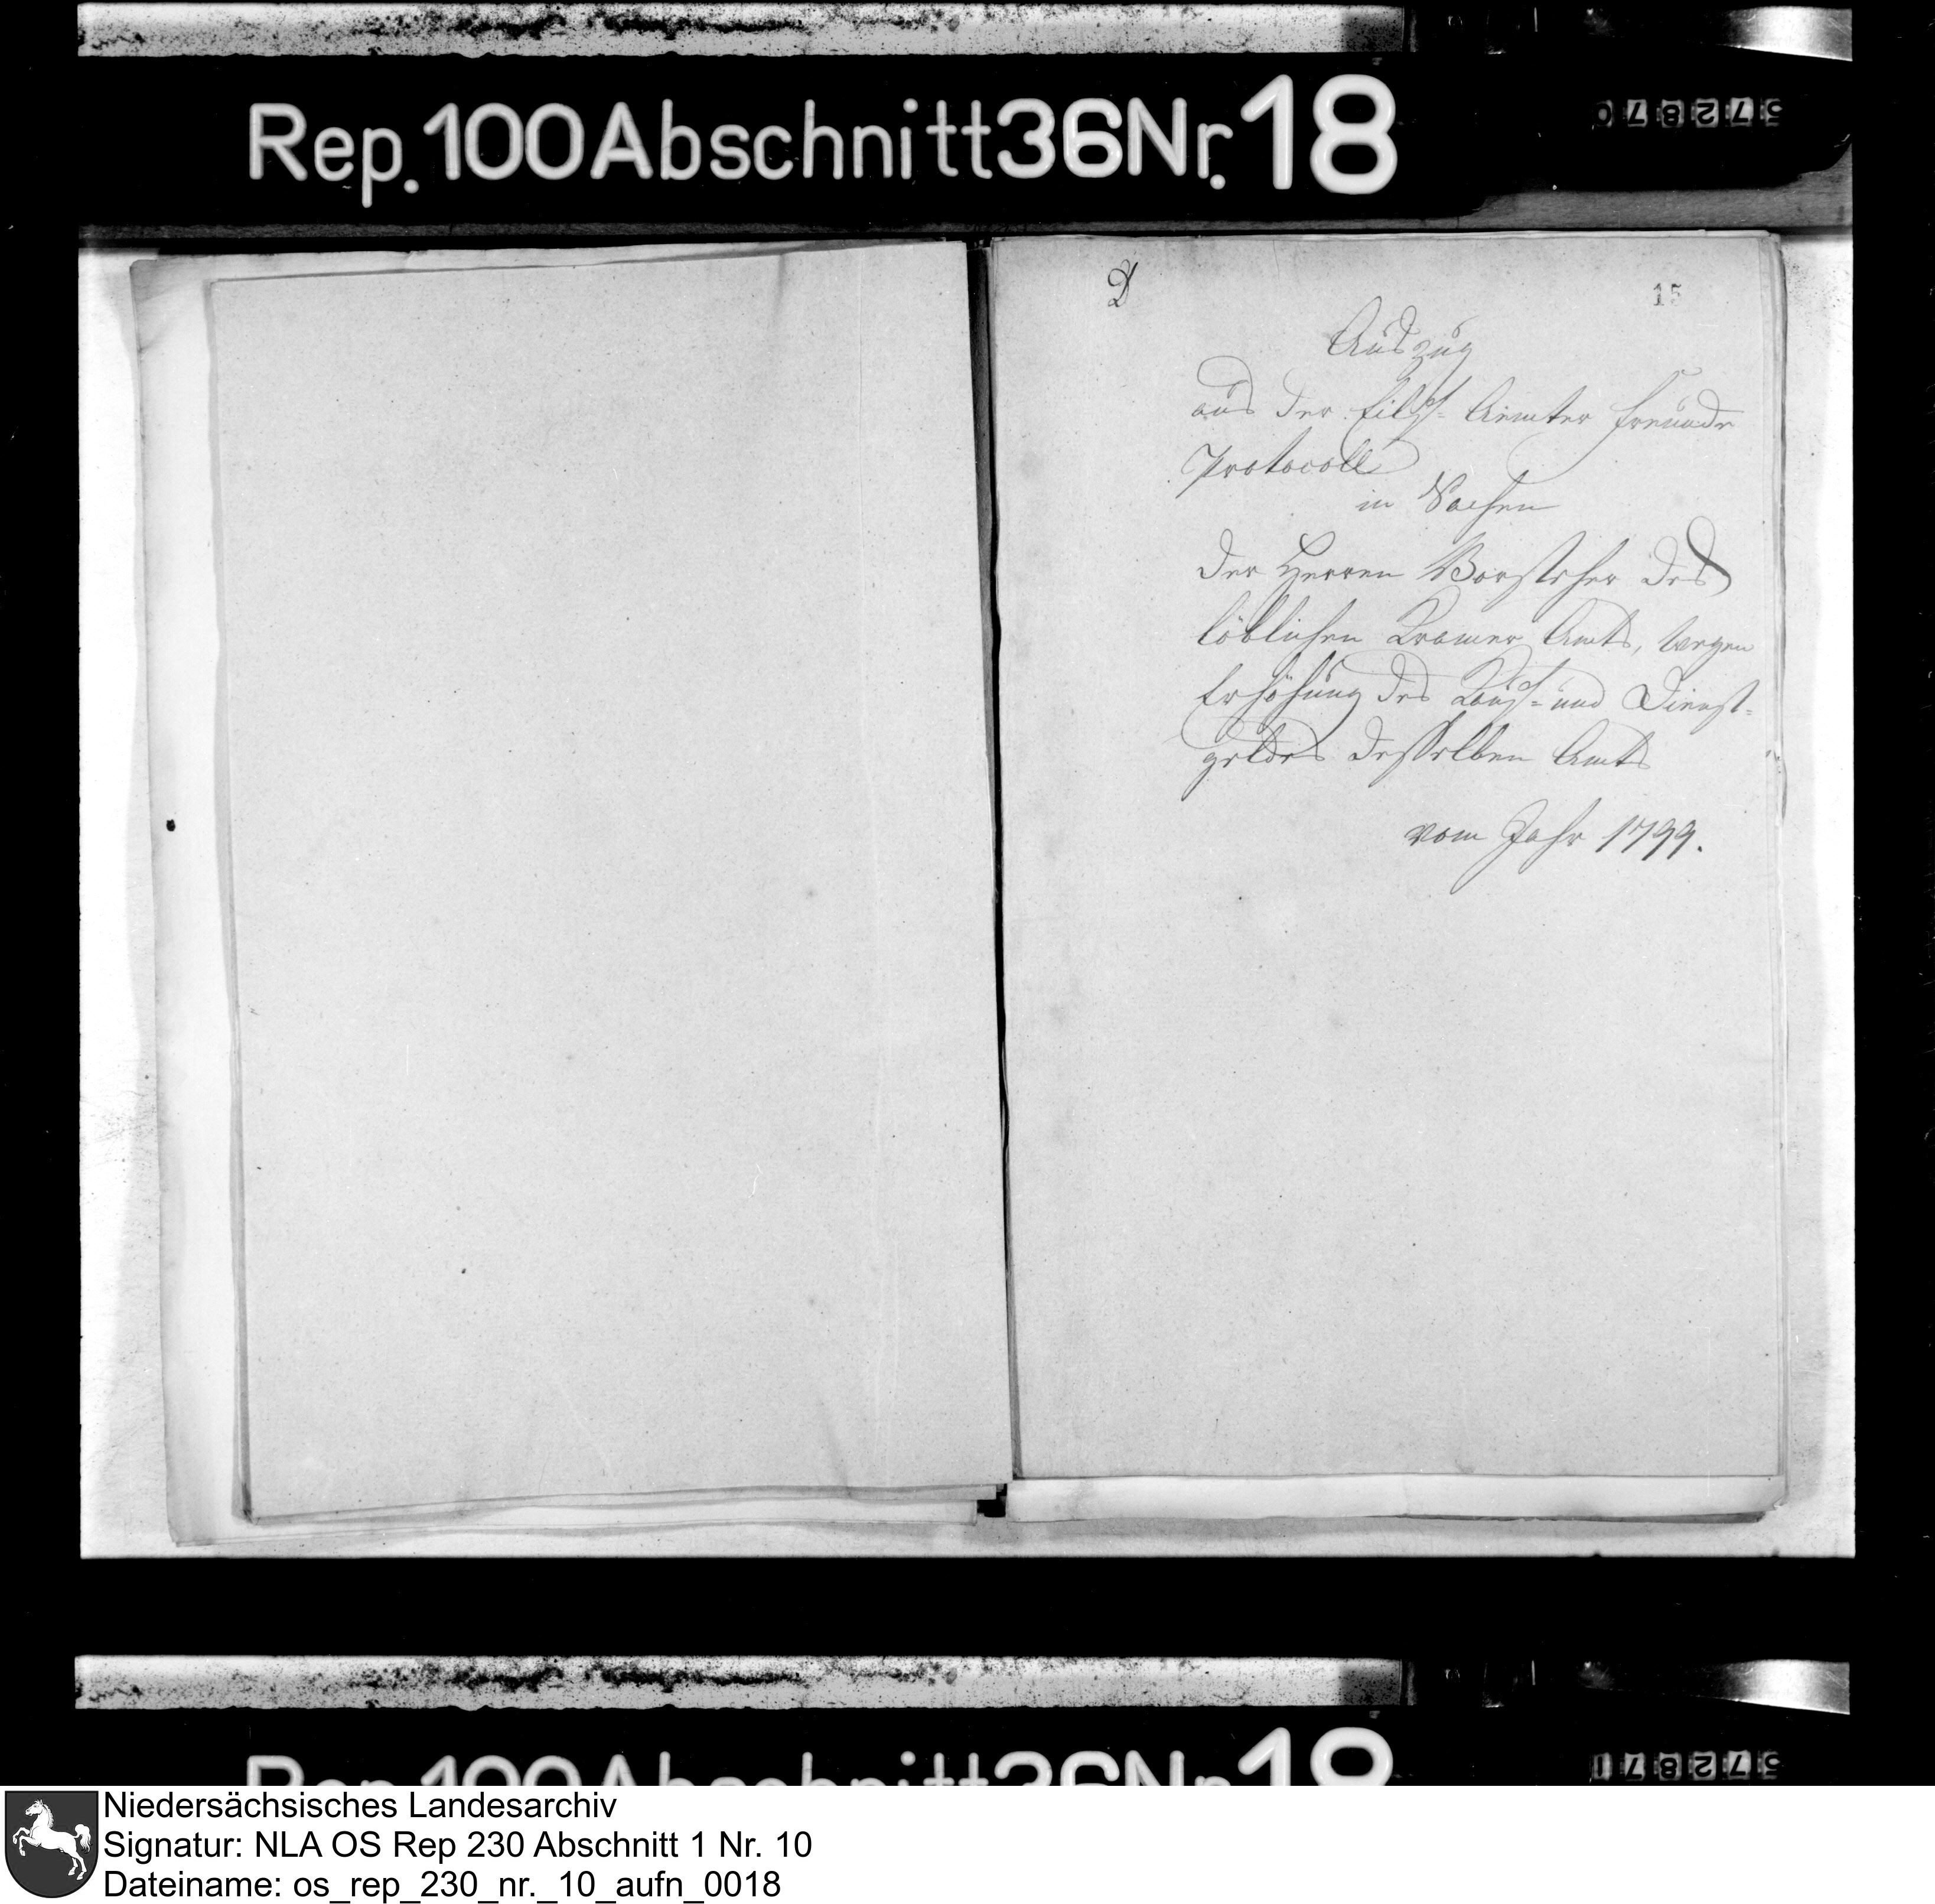 Rep. 100 Abschnitt 36 Nr. 18
572870
D
15
Auszug
aus der Eilf-Aemter Freunde
Protocoll
in Sachen
der Herren Vorsteher des
löblichen Kramer Amts, wegen
Erhöhung des Kauf- und Dienst-
geldes desselben Amts
vom Jahr 1799.
Rep. 100 Abschnitt 36 Nr. 18
572871
Niedersächsisches Landesarchiv
Signatur: NLA OS Rep 230 Abschnitt 1 Nr. 10
Dateiname: os_rep_230_nr._10_aufn_0018